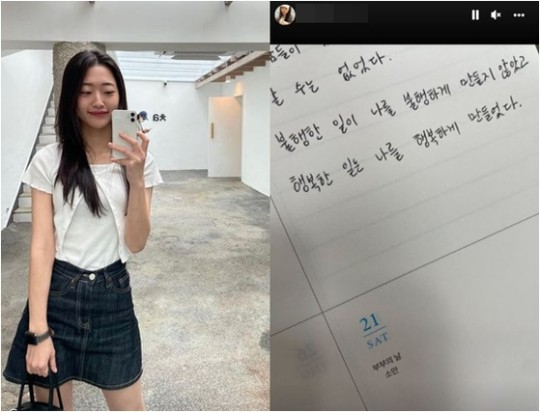 수는 없었다.
불행한 일이 나를 불행하게 만들지 않았고
행복한 일은 나를 행복하게 만들었다.
21
SAT
부부의 날
소만